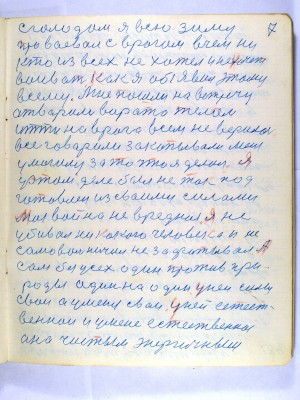 7
с голодом я всю зиму
провоевал с врагом в чем ни
кто из всех не хотел и не хочет
воевать как я обявил этому
всему. Мне пошли на встречу
отварили варата телом
итти на врага всем не верилос
все гаварили закапывали меня
у могилу за то што я делаю. я
у этом деле был не так под
готовлен из своими силами
Моя война не вредная, я не
убивал никакого человека и не
самовольничил не задратывал А
сам был усех один против при-
роды один на один у ней силы
свои а у меня свои, У ней естест-
венной и у мене естественная
ана чистым энергичным